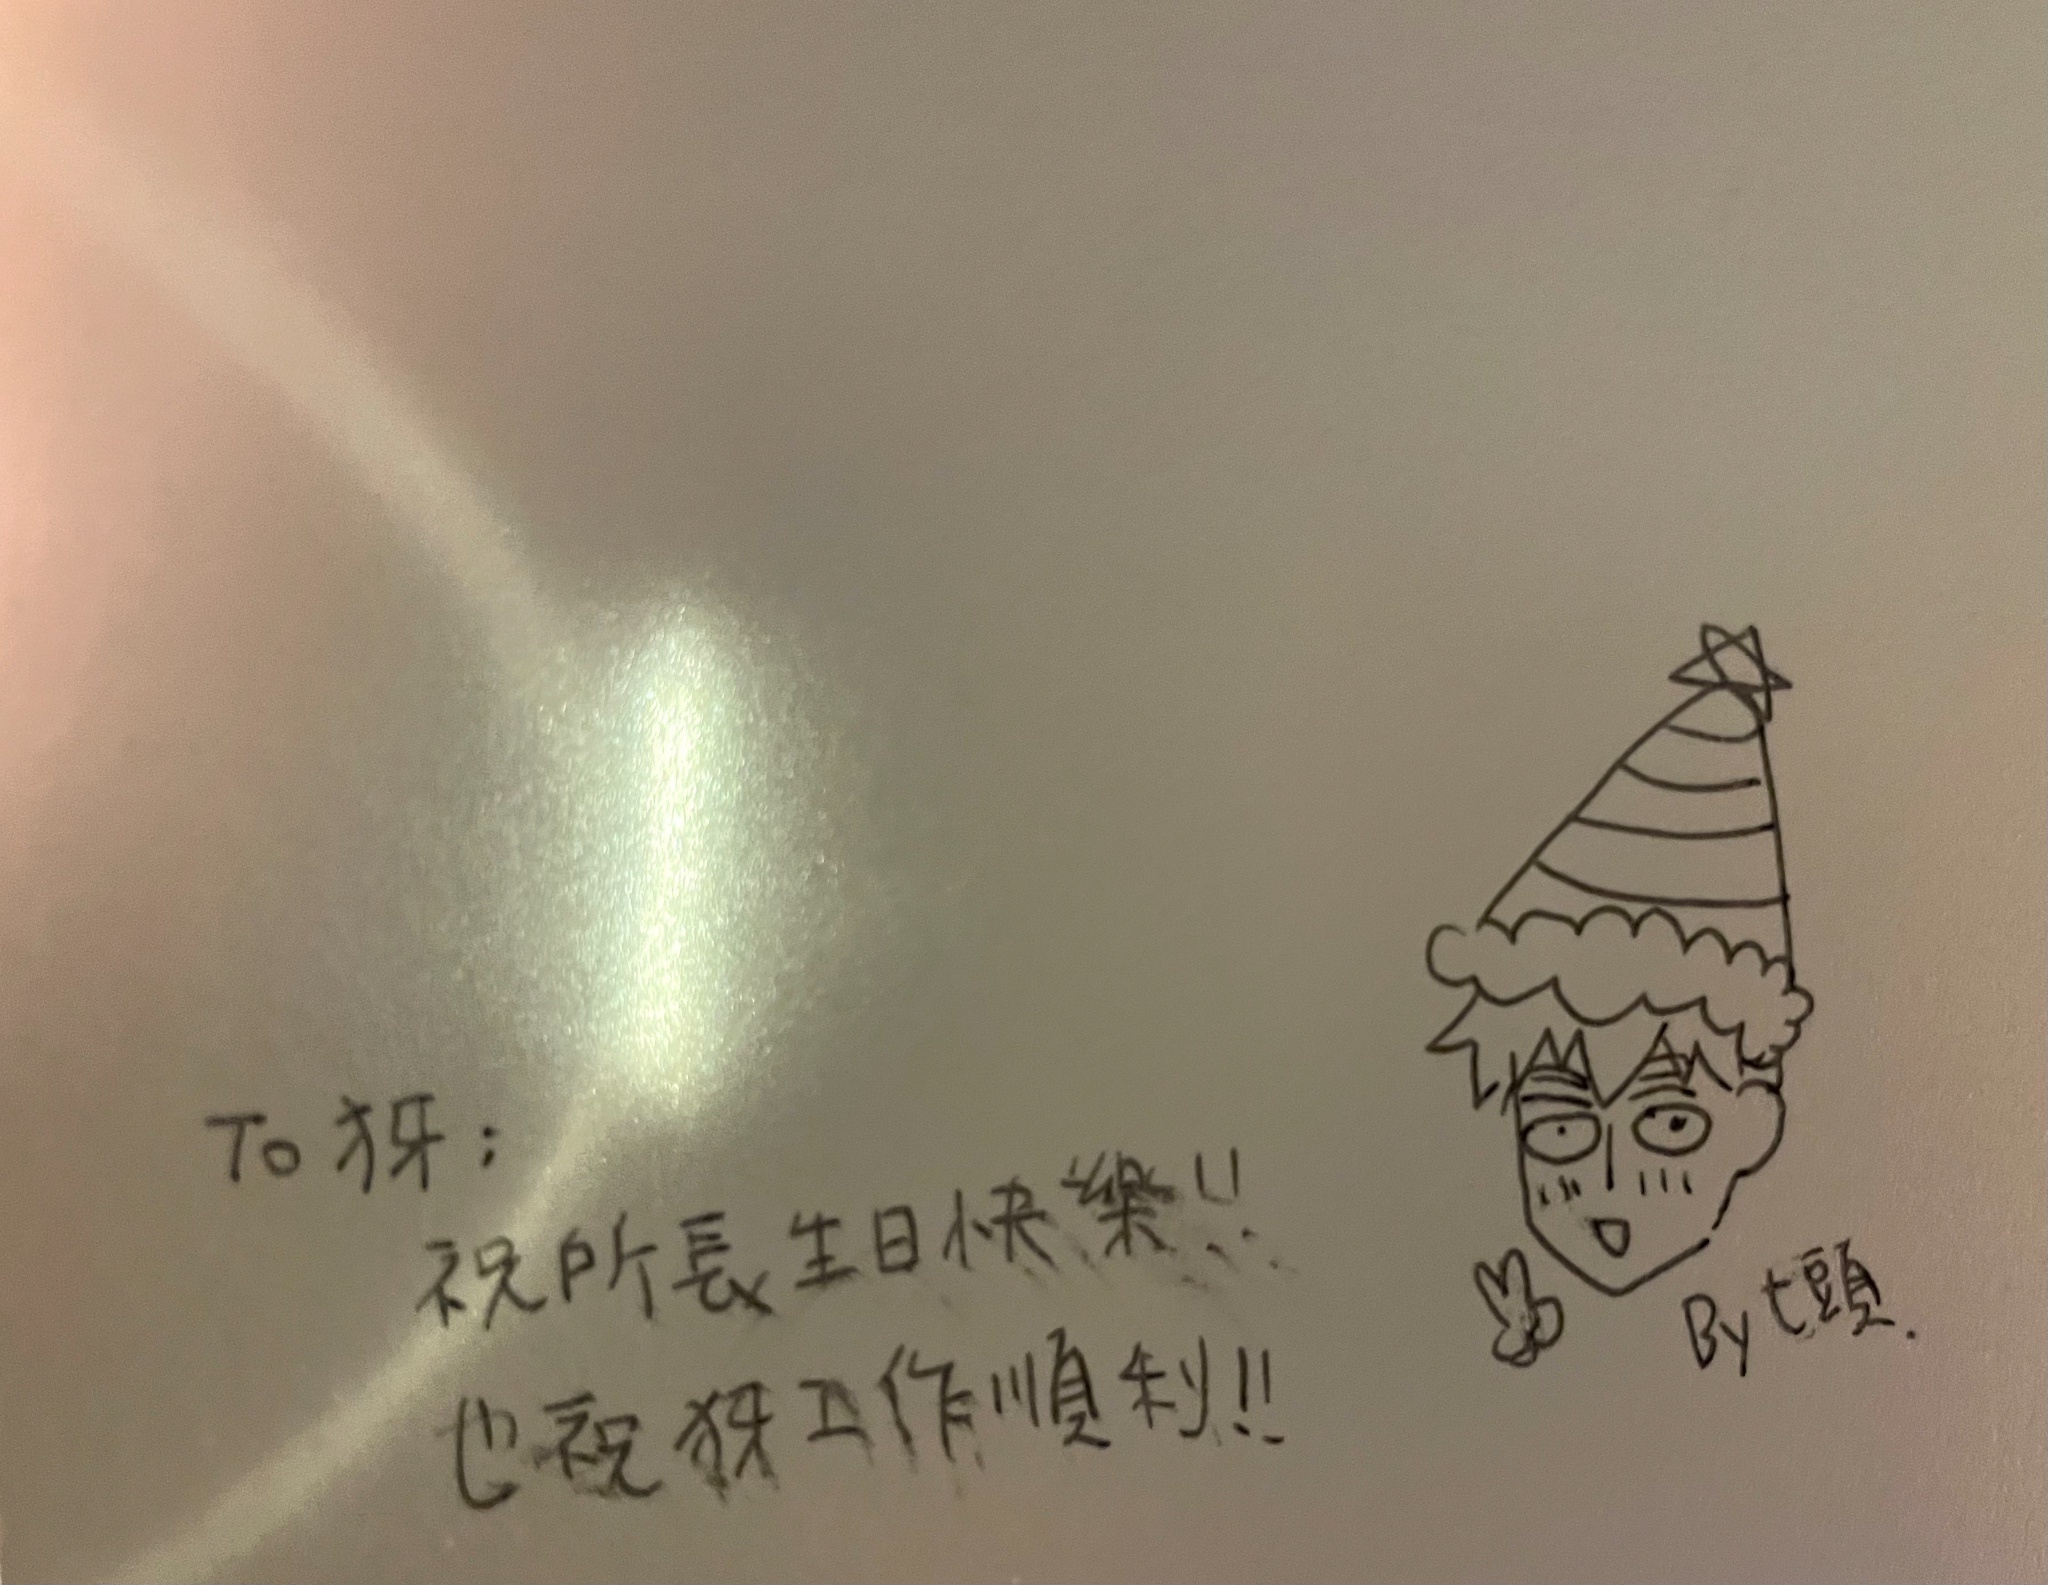 To 犽:
祝所長生日快樂!!
也祝犽工作順利!!
By 七頭.